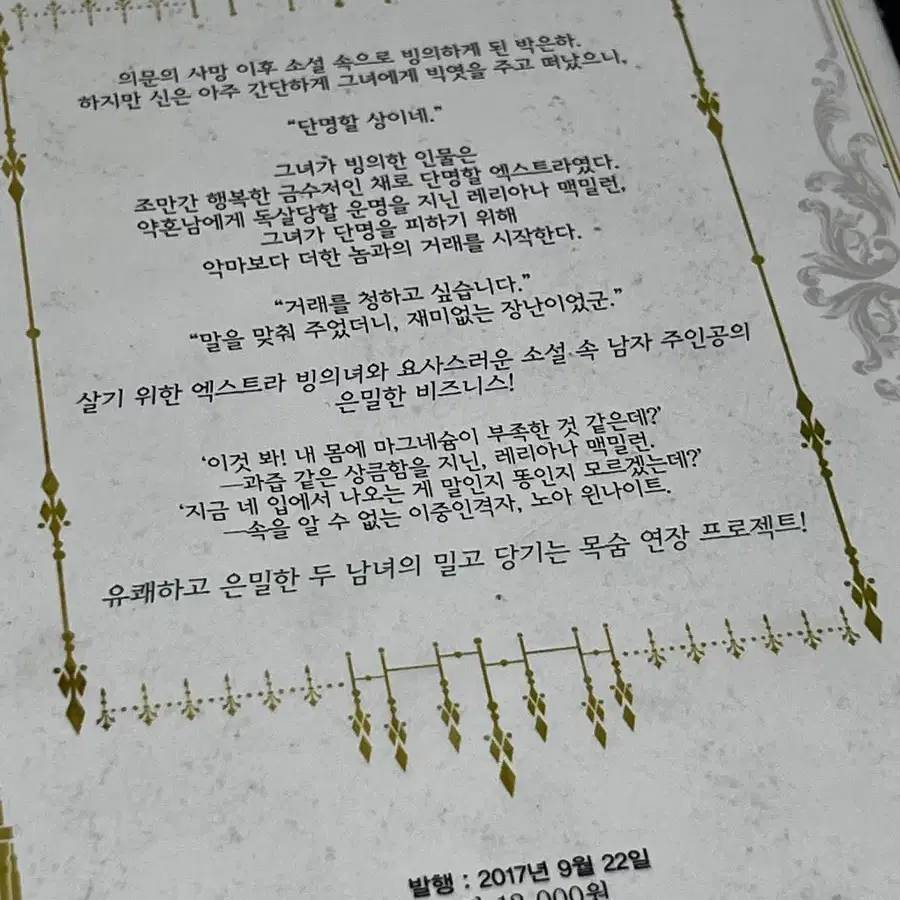 의문의 사망 이후 소설 속으로 빙의하게 된 박은하.
하지만 신은 아주 간단하게 그녀에게 빅엿을 주고 떠났으니,
“단명할 상이네.”
그녀가 빙의한 인물은
조만간 행복한 금수저인 채로 단명할 엑스트라였다.
약혼남에게 독살당할 운명을 지닌 레리아나 맥밀런,
그녀가 단명을 피하기 위해
악마보다 더한 놈과의 거래를 시작한다.
“거래를 청하고 싶습니다.”
“말을 맞춰 주었더니, 재미없는 장난이었군.”
살기 위한 엑스트라 빙의녀와 요사스러운 소설 속 남자 주인공의
은밀한 비즈니스!
‘이것 봐! 내 몸에 마그네슘이 부족한 것 같은데?’
—과즙 같은 상큼함을 지닌, 레리아나 맥밀런.
‘지금 네 입에서 나오는 게 말인지 똥인지 모르겠는데?’
—속을 알 수 없는 이중인격자, 노아 윈나이트.
유쾌하고 은밀한 두 남녀의 밀고 당기는 목숨 연장 프로젝트!
발행 : 2017년 9월 22일